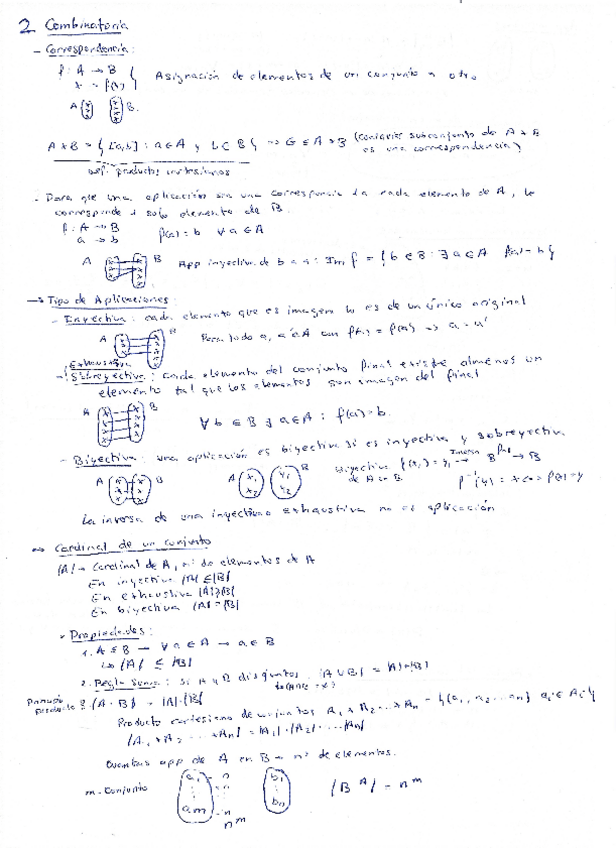 2 Combinatoria
- Correspondencia:
f: A → B
x → f(x)
Asignación de elementos de un conjunto a otro
A B
A × B = { [a,b] : a ∈ A y b ∈ B } → G ⊆ A × B (cualquier subconjunto de A × B
es una correspondencia)
def. productos cartesianos
- Para que una aplicación sea una correspondencia a cada elemento de A, le
corresponde 1 solo elemento de B.
f: A → B
a → b
f(a) = b ∀ a ∈ A
A B App inyectiva de b a a: Im f = { b ∈ B : ∃ a ∈ A f(a) = b }
→ Tipo de Aplicaciones:
- Inyectiva: cada elemento que es imagen lo es de un único original
A B Para todo a, a' ∈ A con f(a) = f(a') → a = a'
Exhaustiva
- Sobreyectiva: Cada elemento del conjunto final existe almenos un
elemento tal que los elementos son imagen del final
A B
∀ b ∈ B ∃ a ∈ A : f(a) = b.
- Biyectiva: una aplicación es biyectiva si es inyectiva y sobreyectiva
A B A x1 x2 y1 y2 B Biyectiva f(x1) = y1 Inversa
de A en B
f⁻¹(y) = x <=> f(x) = y
La inversa de una inyectiva o exhaustiva no es aplicación
→ Cardinal de un conjunto
|A| → Cardinal de A, nº de elementos de A
En inyectiva |A| ≤ |B|
En exhaustiva |A| ≥ |B|
En biyectiva |A| = |B|
- Propiedades:
1. A ⊆ B → ∀ a ∈ A → a ∈ B
↳ |A| ≤ |B|
2. Regla Suma: Si A y B disjuntos |A ∪ B| = |A| + |B|
Producto 3. |A · B| = |A| · |B|
Producto cartesiano de conjuntos A1 × A2 ... × An = { (a1, a2 ... an) ai ∈ Ai }
|A1 × A2 ... × An| = |A1| · |A2| · ... |An|
Cuantas app de A en B → nº de elementos.
m - Conjunto
a1 - n
am - n
n^m
b1
bn
|B^A| = n^m